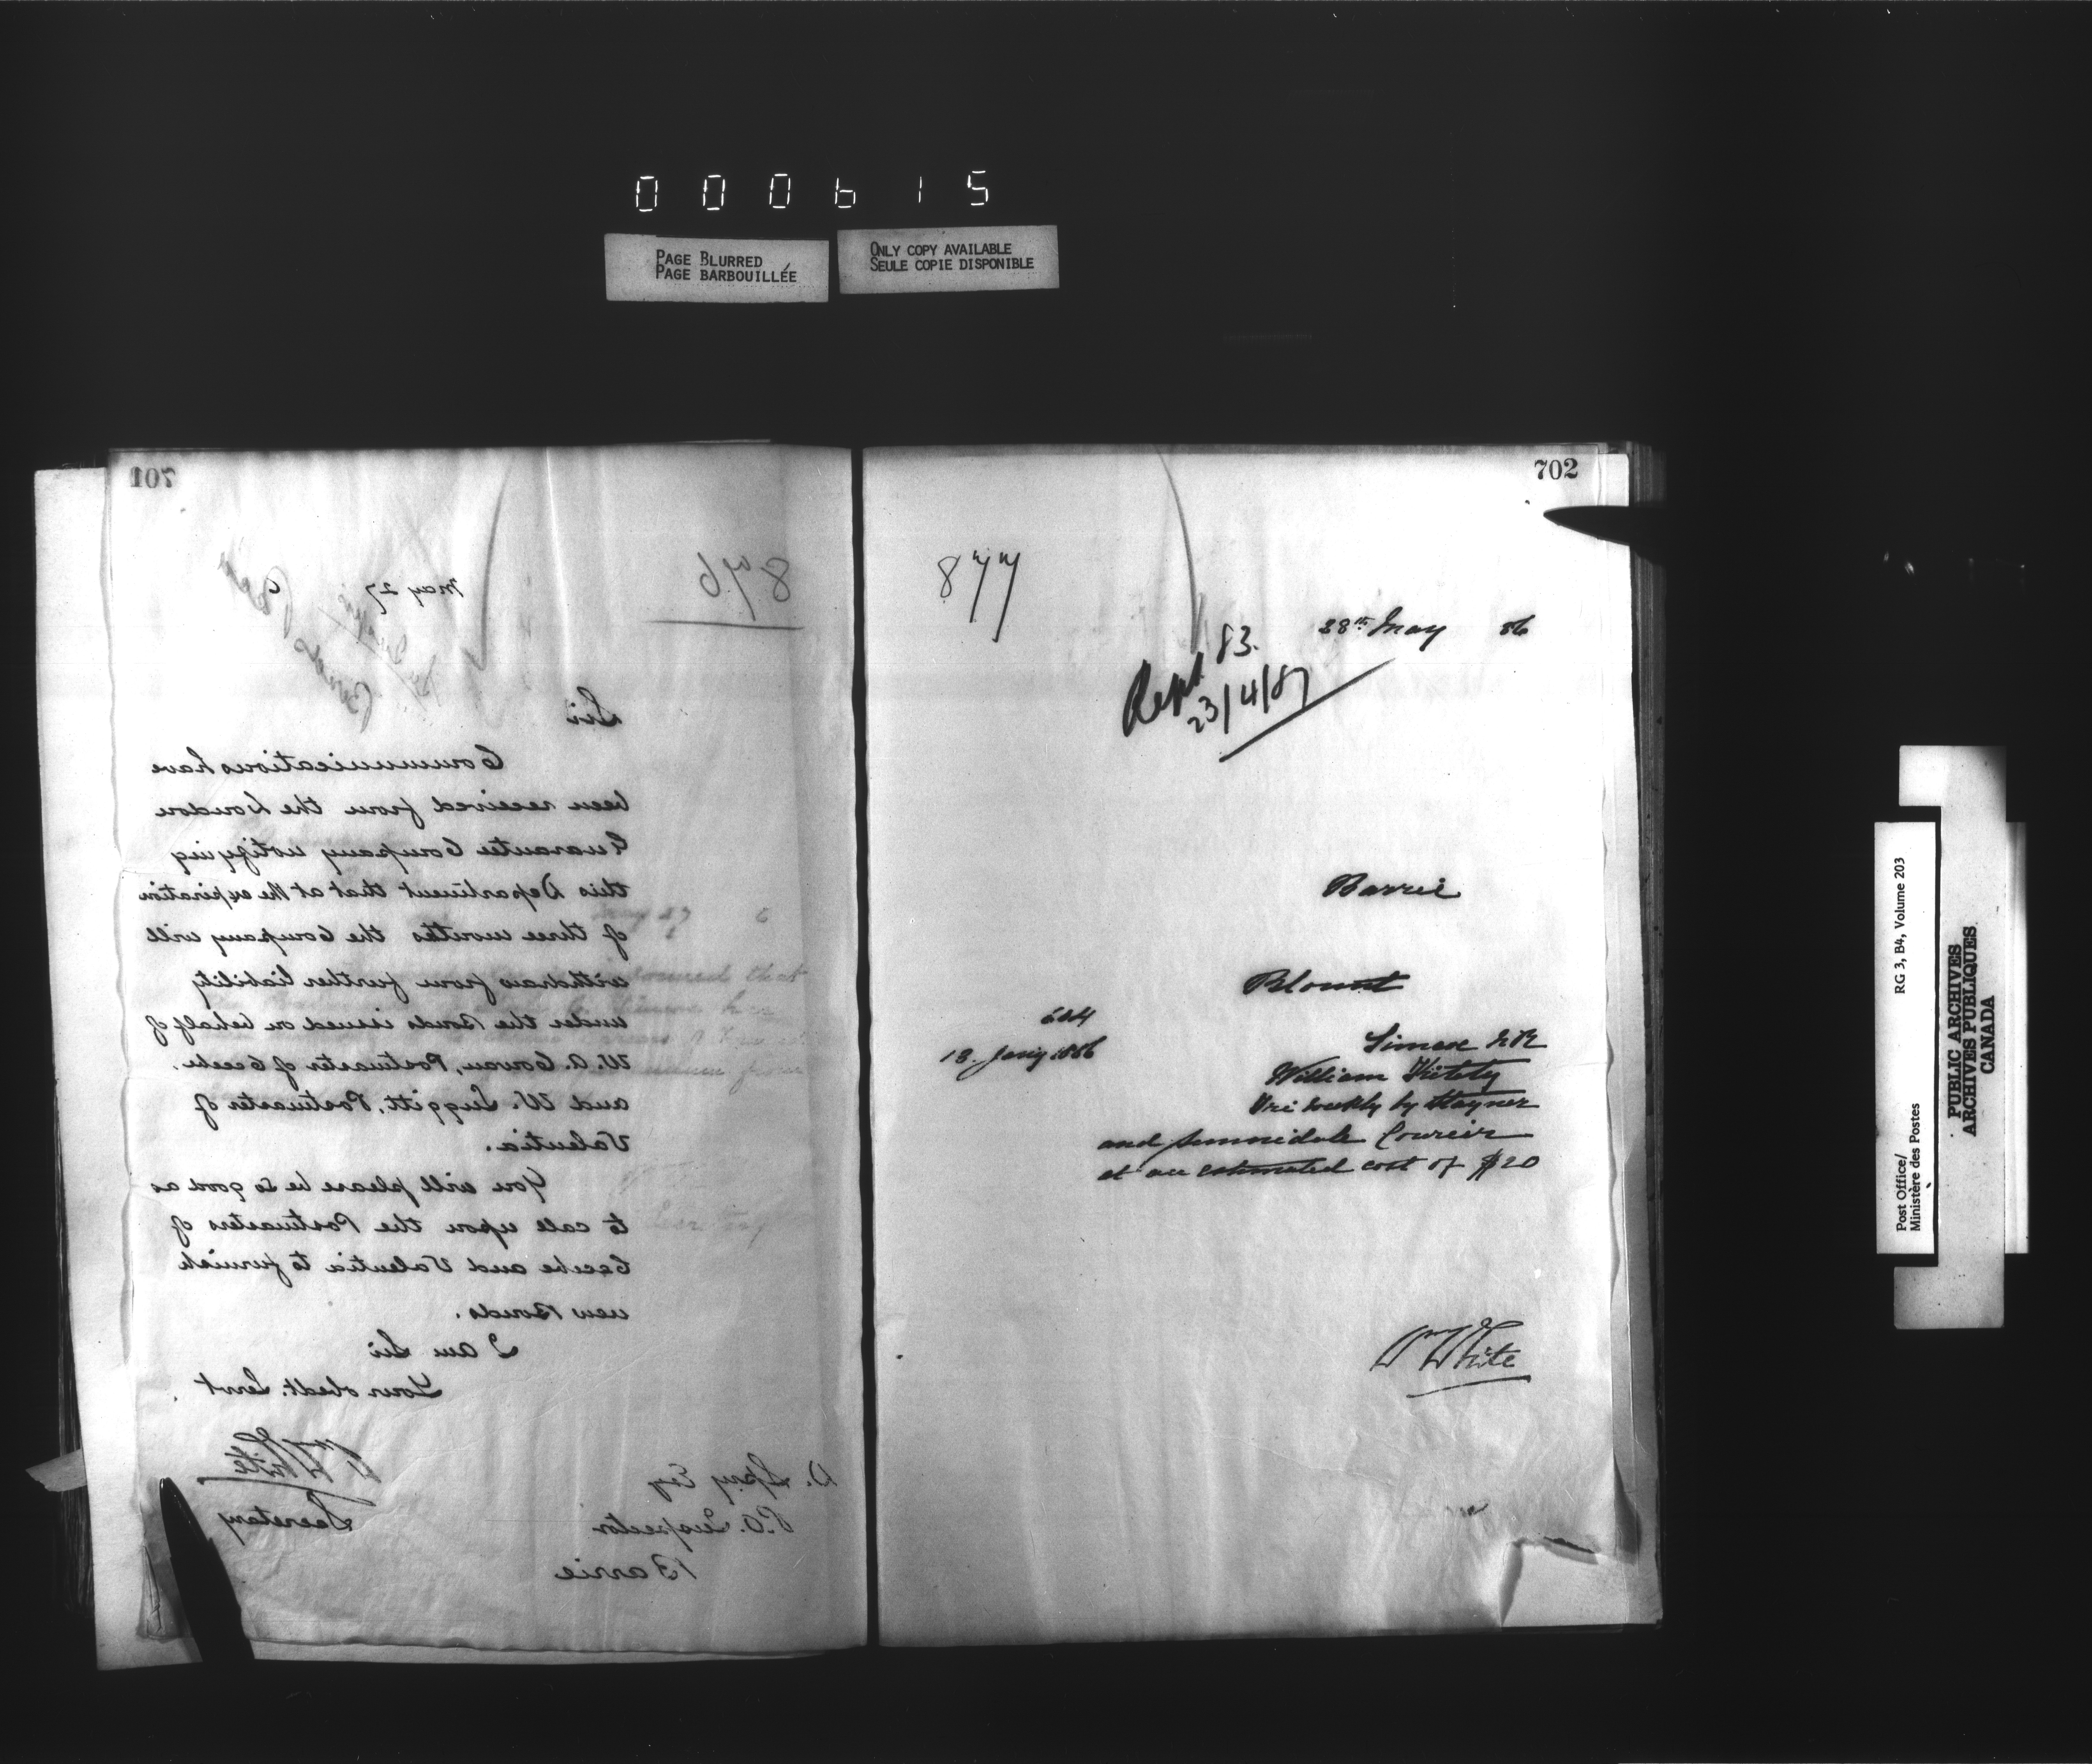 000615
PAGE BLURRED
PAGE BARBOUILLÉE
ONLY COPY AVAILABLE
SEULE COPIE DISPONIBLE
701
876
May 27 6
Bonds
Sir
Communications have
been received from the London
Guarantee Company notifying
this Department that at the expiration
of three months the Company will
withdraw from further liability
under the Bonds issued on behalf of
W. A. Cowan, Postmaster of
and W. Suggitt, Postmaster of
Valentia.
You will please be so good as
to call upon the Postmasters of
and Valentia to furnish
new Bonds.
I am Sir
Your obedt. Servt
Wm White
Secretary
D. Spry Esq
P.O. Inspector
Barrie
702
877
28th May 86
Rept. 83.
23/4/87
Barrie
Blount
644
13. Jany 1886
Simcoe N.R
William
Tri weekly by Stayner
and Sunnidale Coureir
at an estimated cost of $20
Wm White
Post Office/ RG 3, B4, Volume 203
Ministère des Postes
PUBLIC ARCHIVES
ARCHIVES PUBLIQUES
CANADA